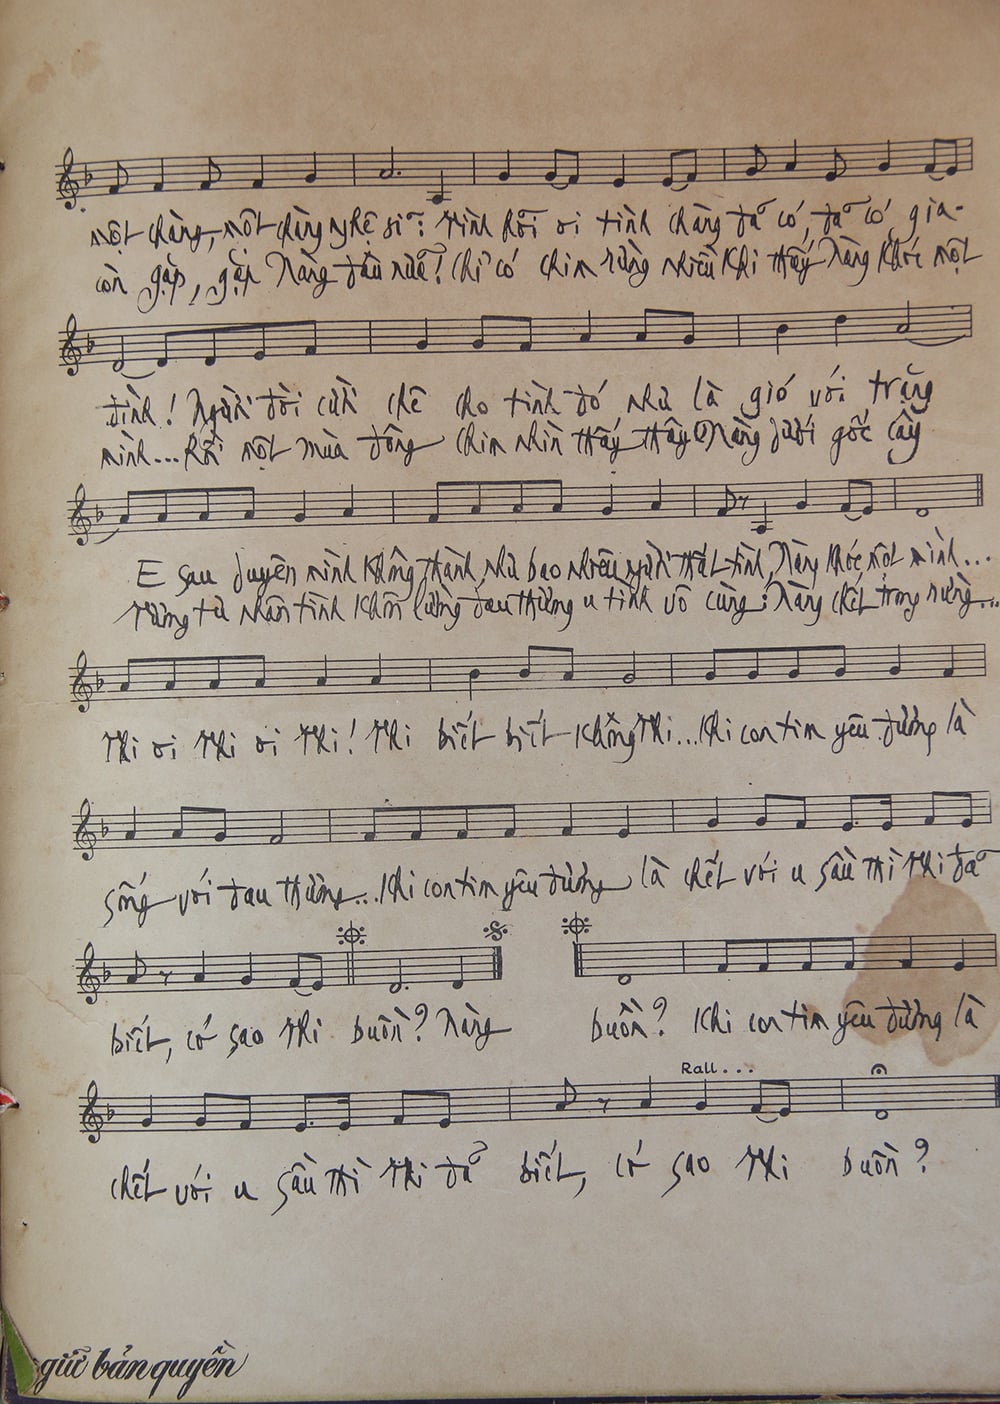 một chàng, một chàng nghệ sĩ: Tình hỡi ơi tình chàng đã có, đã có gia-
còn gặp, gặp Nàng đâu nữa? Chỉ có chim rừng nhiều khi thấy Nàng khóc một
đình! Người đời cười chê cho tình đó như là gió với trăng
mình... Rồi một mùa đông chim nhìn thấy thấy Nàng dưới gốc cây
E sau duyên mình không thành, như bao nhiêu người thất tình, Nàng khóc một mình...
Tương tư nhân tình khôn lường đau thương u tình vô cùng: Nàng chết trong rừng...
Thi ơi Thi ơi Thi! Thi biết biết không Thi... Khi con tim yêu đương là
sống với đau thương... Khi con tim yêu đương là chết với u sầu thì Thi đã
biết, cớ sao Thi buồn? Nàng buồn? Khi con tim yêu đương là
Rall...
chết với u sầu thì Thi đã biết, cớ sao Thi buồn?
giữ bản quyền